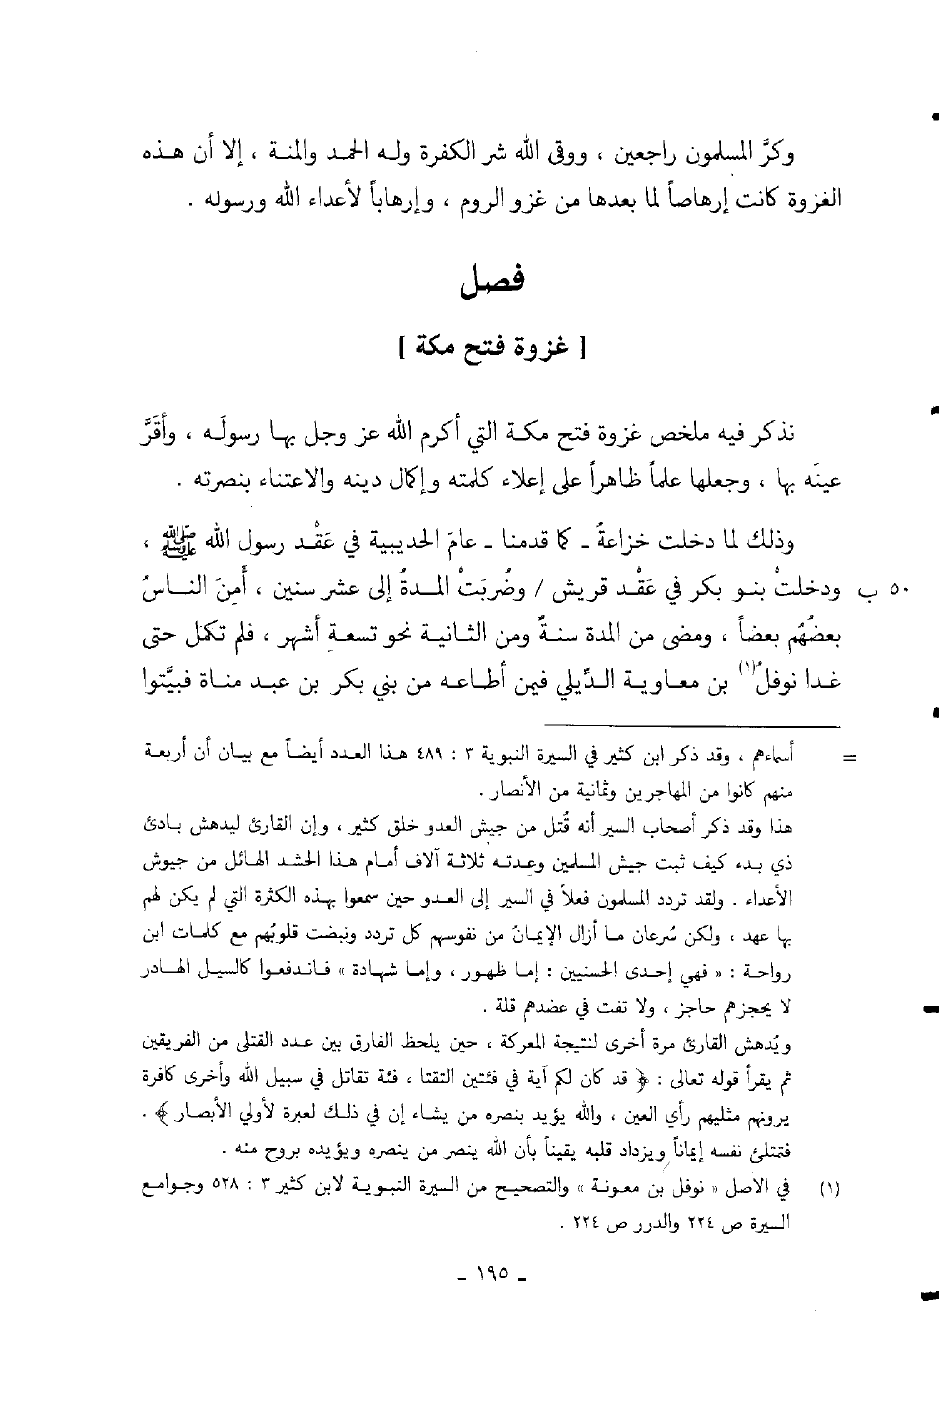 وكرَّ المسلمون راجعين ، ووقى الله شر الكفرة وله الحمد والمنة ، إلا أن هذه
الغزوة كانت إرهاصاً لما بعدها من غزو الروم ، وإرهاباً لأعداء الله ورسوله .
فصل
[ غزوة فتح مكة ]
نذكر فيه ملخص غزوة فتح مكة التي أكرم الله عز وجل بها رسولَه ، وأقَرَّ
عينَه بها ، وجعلها علماً ظاهراً على إعلاء كلمته وإكمال دينه والاعتناء بنصرته .
وذلك لما دخلت خزاعةُ ـ كما قدمنا ـ عامَ الحديبية في عَقْد رسول الله ﷺ ،
٥٠ ب ودخلتْ بنو بكر في عَقْد قريش / وضُربَتْ المدةُ إلى عشر سنين ، أَمِنَ الناسُ
بعضُهُم بعضاً ، ومضى من المدة سنةٌ ومن الثانية نحو تسعة أشهر ، فلم تكمل حتى
غدا نوفلُ(١) بن معاوية الدِّيلي فيمن أطاعه من بني بكر بن عبد مناة فبيَّتوا
= أسماءهم ، وقد ذكر ابن كثير في السيرة النبوية ٣ : ٤٨٩ هذا العدد أيضاً مع بيان أن أربعة
منهم كانوا من المهاجرين وثمانية من الأنصار .
هذا وقد ذكر أصحاب السير أنه قُتل من جيش العدو خلق كثير ، وإن القارئ ليدهش بادئ
ذي بدء كيف ثبت جيش المسلمين وعدته ثلاثة آلاف أمام هذا الحشد الهائل من جيوش
الأعداء . ولقد تردد المسلمون فعلاً في السير إلى العدو حين سمعوا بهذه الكثرة التي لم يكن لهم
بها عهد ، ولكن سُرعان ما أزال الإيمانُ من نفوسهم كل تردد ونبضت قلوبُهم مع كلمات ابن
رواحة : « فهي إحدى الحسنيين : إما ظهور ، وإما شهادة » فاندفعوا كالسيل الهادر
لا يحجزهم حاجز ، ولا تفت في عضدهم قلة .
ويُدهش القارئ مرة أخرى لنتيجة المعركة ، حين يلحظ الفارق بين عدد القتلى من الفريقين
ثم يقرأ قوله تعالى : ﴿ قد كان لكم آية في فئتين التقتا ، فئة تقاتل في سبيل الله وأخرى كافرة
يرونهم مثليهم رأي العين ، والله يؤيد بنصره من يشاء إن في ذلك لعبرة لأولي الأبصار ﴾ .
فتمتلئ نفسه إيماناً ويزداد قلبه يقيناً بأن الله ينصر من ينصره ويؤيده بروح منه .
(١) في الاصل « نوفل بن معونة » والتصحيح من السيرة النبوية لابن كثير ٣ : ٥٢٨ وجوامع
السيرة ص ٢٢٤ والدرر ص ٢٢٤ .
ـ ١٩٥ ـ